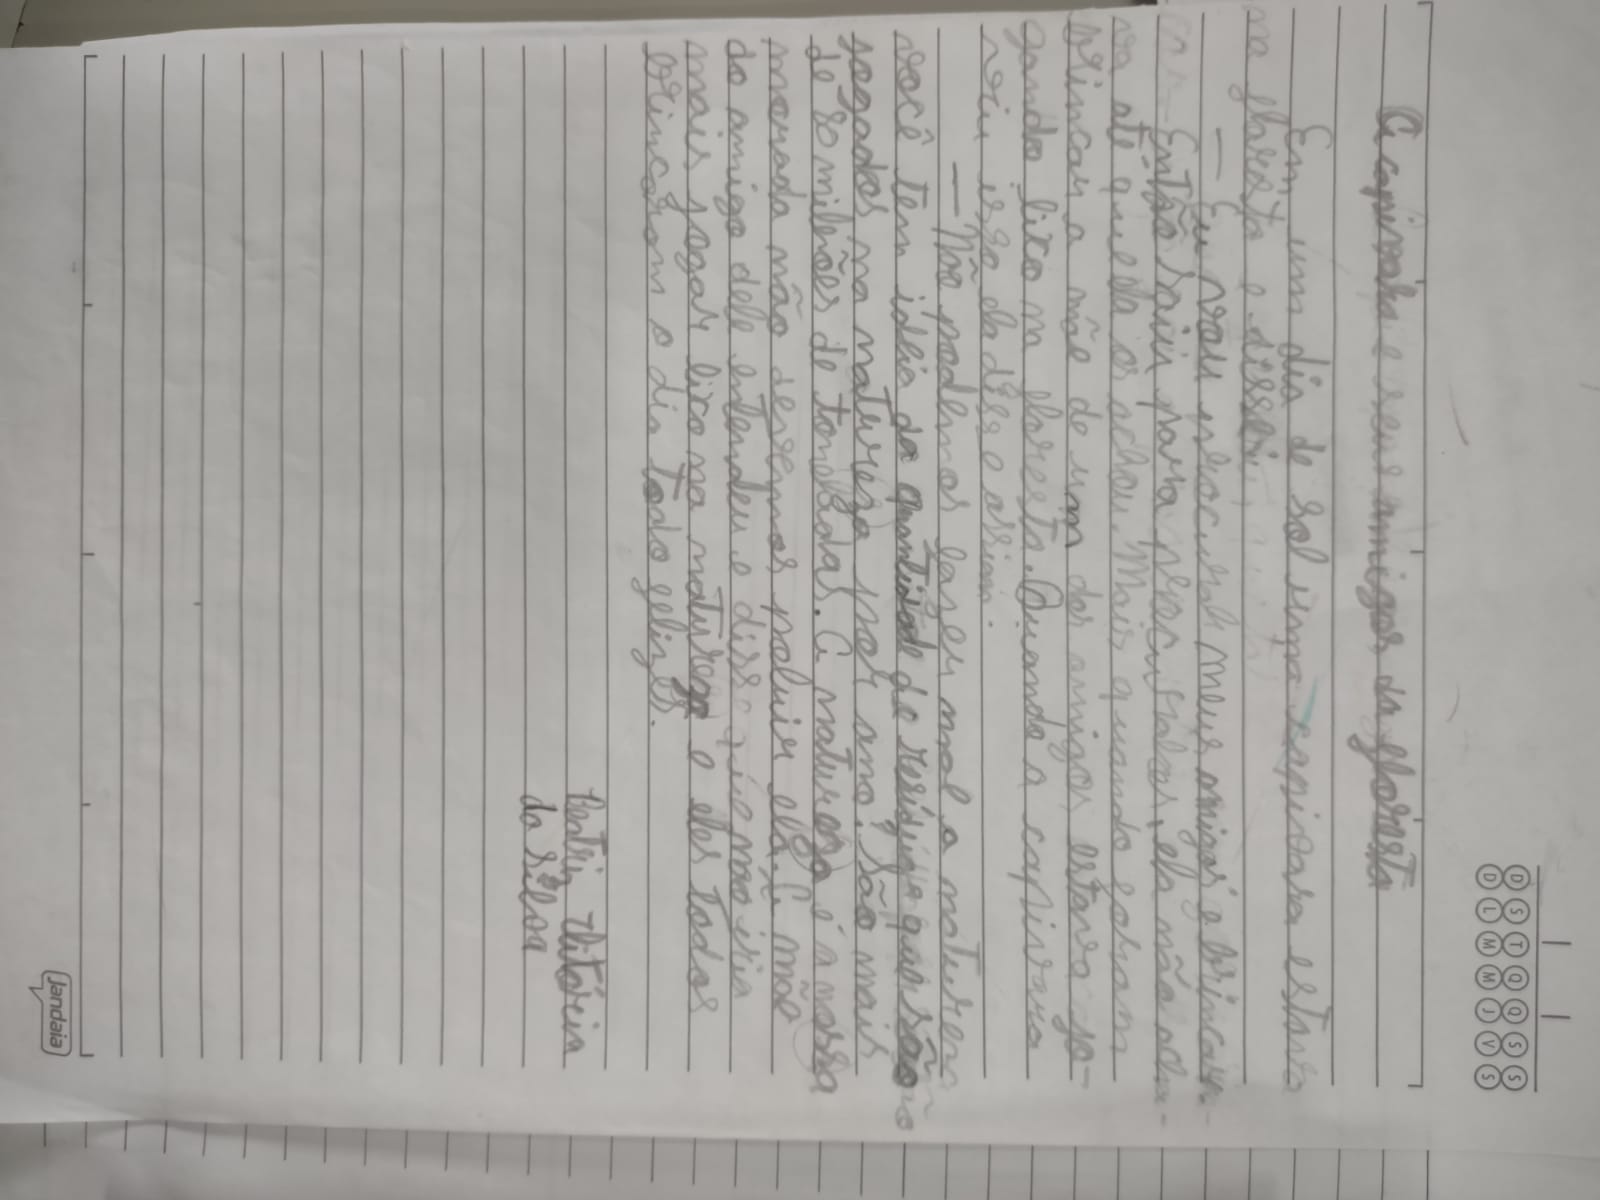 D S T Q Q S S
D L M M J V S
A capivara e seus amigos da floresta
Em um dia de sol uma capivara estava
na floresta e disse:
— Eu vou procurar meus amigos e brincar
Então saiu para procuralos, ela não acha-
va até que ela os achou. Mais quando foram
brincar a mãe de um dos amigos estava jo-
gando lixo na floresta. Quando a capivara
viu isso ela disse assim:
— Não podemos fazer mal a natureza
você tem ideia da quantidade de resíduos que são
jogados na natureza por ano? São mais
de 80 milhões de toneladas. A natureza é a nossa
morada não devemos poluir ela. A mãe
do amigo dele entendeu e disse que não iria
mais jogar lixo na natureza e eles todos
brincaram o dia todo felizes.
Beatriz Vitória
da silva
Jandaia